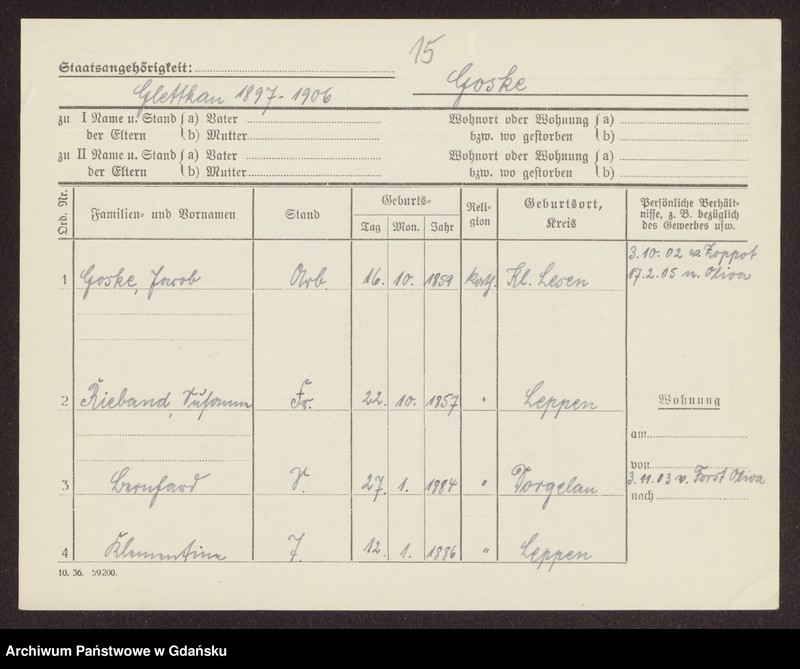 15
Staatsangehörigkeit:
Goske
Glettkau 1897-1906
zu I Name u. Stand (a) Vater
der Eltern (b) Mutter
Wohnort oder Wohnung (a)
bzw. wo gestorben (b)
zu II Name u. Stand (a) Vater
der Eltern (b) Mutter
Wohnort oder Wohnung (a)
bzw. wo gestorben (b)
Ord. Nr.
Familien- und Vornamen
Stand
Geburts-
Tag Mon. Jahr
Reli-
gion
Geburtsort,
Kreis
Persönliche Verhält-
nisse, z. B. bezüglich
des Gewerbes usw.
3.10.02 v. Zoppot
17.2.05 n. Oliva
1 Goske, Jacob Arb. 16. 10. 1859 kath. Kl. Lesen
2 Rieband, Susanna Fr. 22. 10. 1857 " Leppen
Wohnung
am
von
3.11.03 v. Forst Oliva
nach
3 Bernhard S. 27. 1. 1884 " Torgelau
4 Klementine T. 12. 1. 1886 " Leppen
10. 36. 59200.
Archiwum Państwowe w Gdańsku